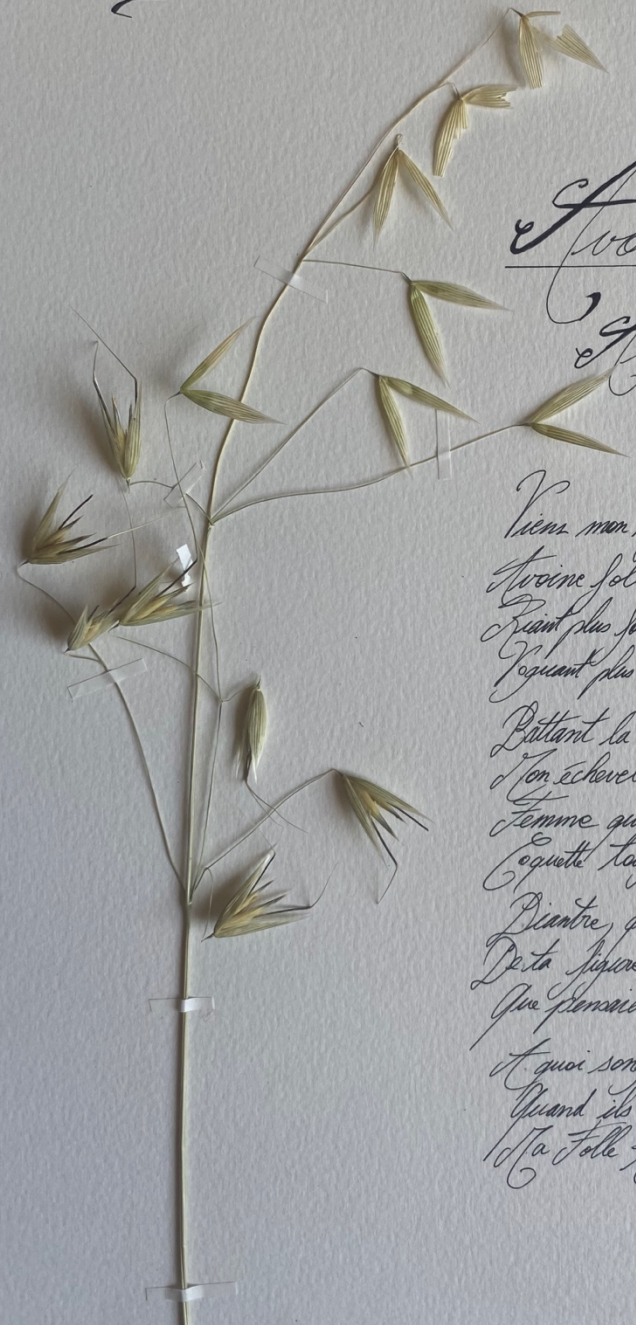 Avo
Viens mon
Avoine fol
Riant plus fo
Voguant plus
Battant la
Mon écheve
Femme qu
Coquette to
Diantre, q
De ta figure
Que pensai
A quoi son
Quand ils
Ma Folle A